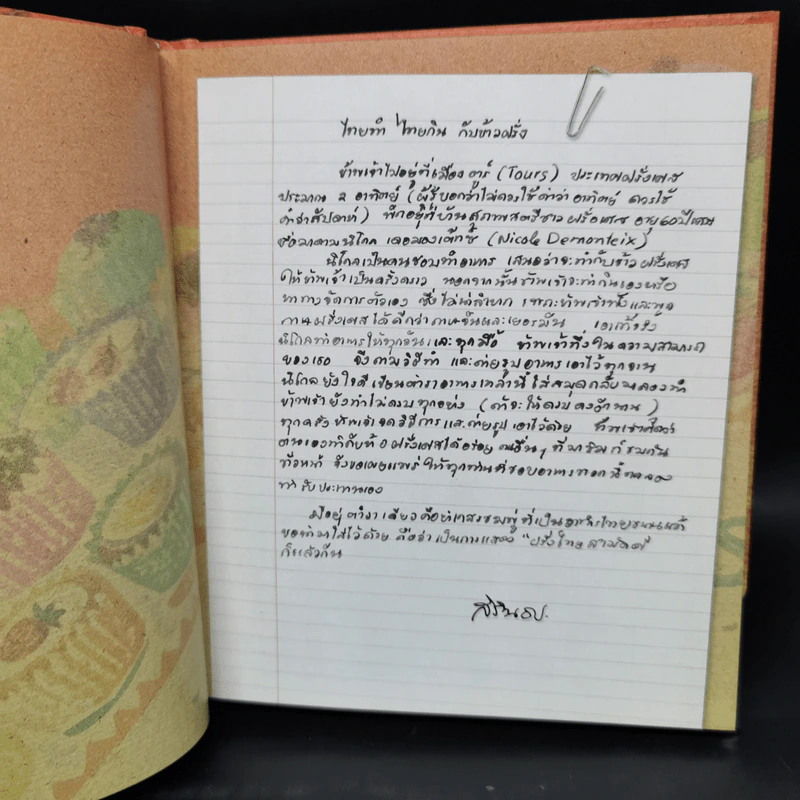 ไทยทำ ไทยกิน กับข้าวฝรั่ง
ข้าพเจ้าไปอยู่ที่เมือง ตูร์ (Tours) ประเทศฝรั่งเศส
ประมาณ ๓ อาทิตย์ (ผู้รู้บอกว่าไม่ควรใช้คำว่า อาทิตย์ ควรใช้
คำว่าสัปดาห์) พักอยู่ที่บ้านสุภาพสตรีชาวฝรั่งเศส อายุ 60 ปีเศษ
ชื่อมาดามนิโคล เดอมองเต๊กซ์ (Nicole Demonteix)
นิโคลเป็นคนชอบทำอาหาร เสนอว่าจะทำกับข้าวฝรั่งเศส
ให้ข้าพเจ้าเป็นครั้งคราว นอกจากนั้นข้าพเจ้าจะทำกินเองหรือ
หาทางจัดการตัวเอง ซึ่งไม่น่าลำบาก เพราะข้าพเจ้าฟังและพูด
ภาษาฝรั่งเศสได้ดีกว่าภาษาจีนและเยอรมัน เอาเข้าจริง
นิโคลทำอาหารให้ทุกวันและทุกมื้อ ข้าพเจ้าทึ่งในความสามารถ
ของเธอ จึงถามวิธีทำ และถ่ายรูปอาหารเอาไว้ทุกจาน
นิโคลยังใจดี เขียนตำราอาหารเหล่านี้ใส่สมุด กลับมาลองทำ
ข้าพเจ้ายังทำไม่ครบทุกอย่าง (ถ้าจะให้ครบคงอีกนาน)
ทุกครั้งข้าพเจ้าจดวิธีการและถ่ายรูปเอาไว้ด้วย ข้าพเจ้าคิดว่า
ตนเองทำกับข้าวฝรั่งเศสได้อร่อย คนอื่นๆ ที่มาชิมก็ชมกัน
ทั่วหน้า จึงขอเผยแพร่ให้ทุกท่านที่ชอบอาหารพวกนี้ทดลอง
ทำรับประทานเอง
มีอยู่ตำราเดียวคือยำเกสรชมพู่ ที่เป็นอาหารไทยขนานแท้
ขอนำมาใส่ไว้ด้วย ถือว่าเป็นการแสดง "ฝรั่งไทยสามัคคี
ก็แล้วกัน
สิรินธร.